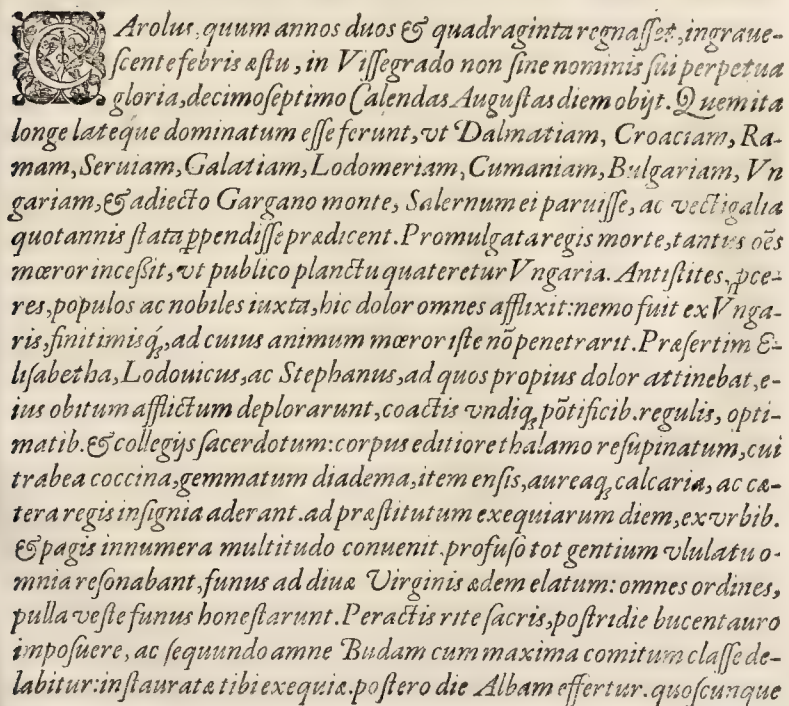 CArolus, quum annos duos & quadraginta regnasset, ingraue-
scente febris æstu, in Vissegrado non sine nominis sui perpetua
gloria, decimoseptimo Calendas Augustas diem obijt. Quem ita
longe lateque dominatum esse ferunt, vt Dalmatiam, Croaciam, Ra-
mam, Seruiam, Galatiam, Lodomeriam, Cumaniam, Bulgariam, Vn
gariam, & adiecto Gargano monte, Salernum ei paruisse, ac vectigalia
quotannis stata ꝑpendisse prædicent. Promulgata regis morte, tantus oẽs
mœror incessit, vt publico planctu quateretur Vngaria. Antistites, ꝓce-
res, populos ac nobiles iuxta, hic dolor omnes afflixit: nemo fuit ex Vnga-
ris, finitimisq;, ad cuius animum mœror iste nõ penetrarit. Præsertim E-
lisabetha, Lodouicus, ac Stephanus, ad quos propius dolor attinebat, e-
ius obitum afflictum deplorarunt, coactis vndiq; põtificib. regulis, opti-
matib. & collegijs sacerdotum: corpus editiore thalamo resupinatum, cui
trabea coccina, gemmatum diadema, item ensis, aureaq; calcaria, ac cæ-
tera regis insignia aderant. ad præstitutum exequiarum diem, ex vrbib.
& pagis innumera multitudo conuenit. profuso tot gentium vlulatu o-
mnia resonabant, funus ad diuæ Virginis ædem elatum: omnes ordines,
pulla veste funus honestarunt. Peractis rite sacris, postridie bucentauro
imposuere, ac sequundo amne Budam cum maxima comitum classe de-
labitur: instauratæ tibi exequiæ. postero die Albam effertur. quoscunque